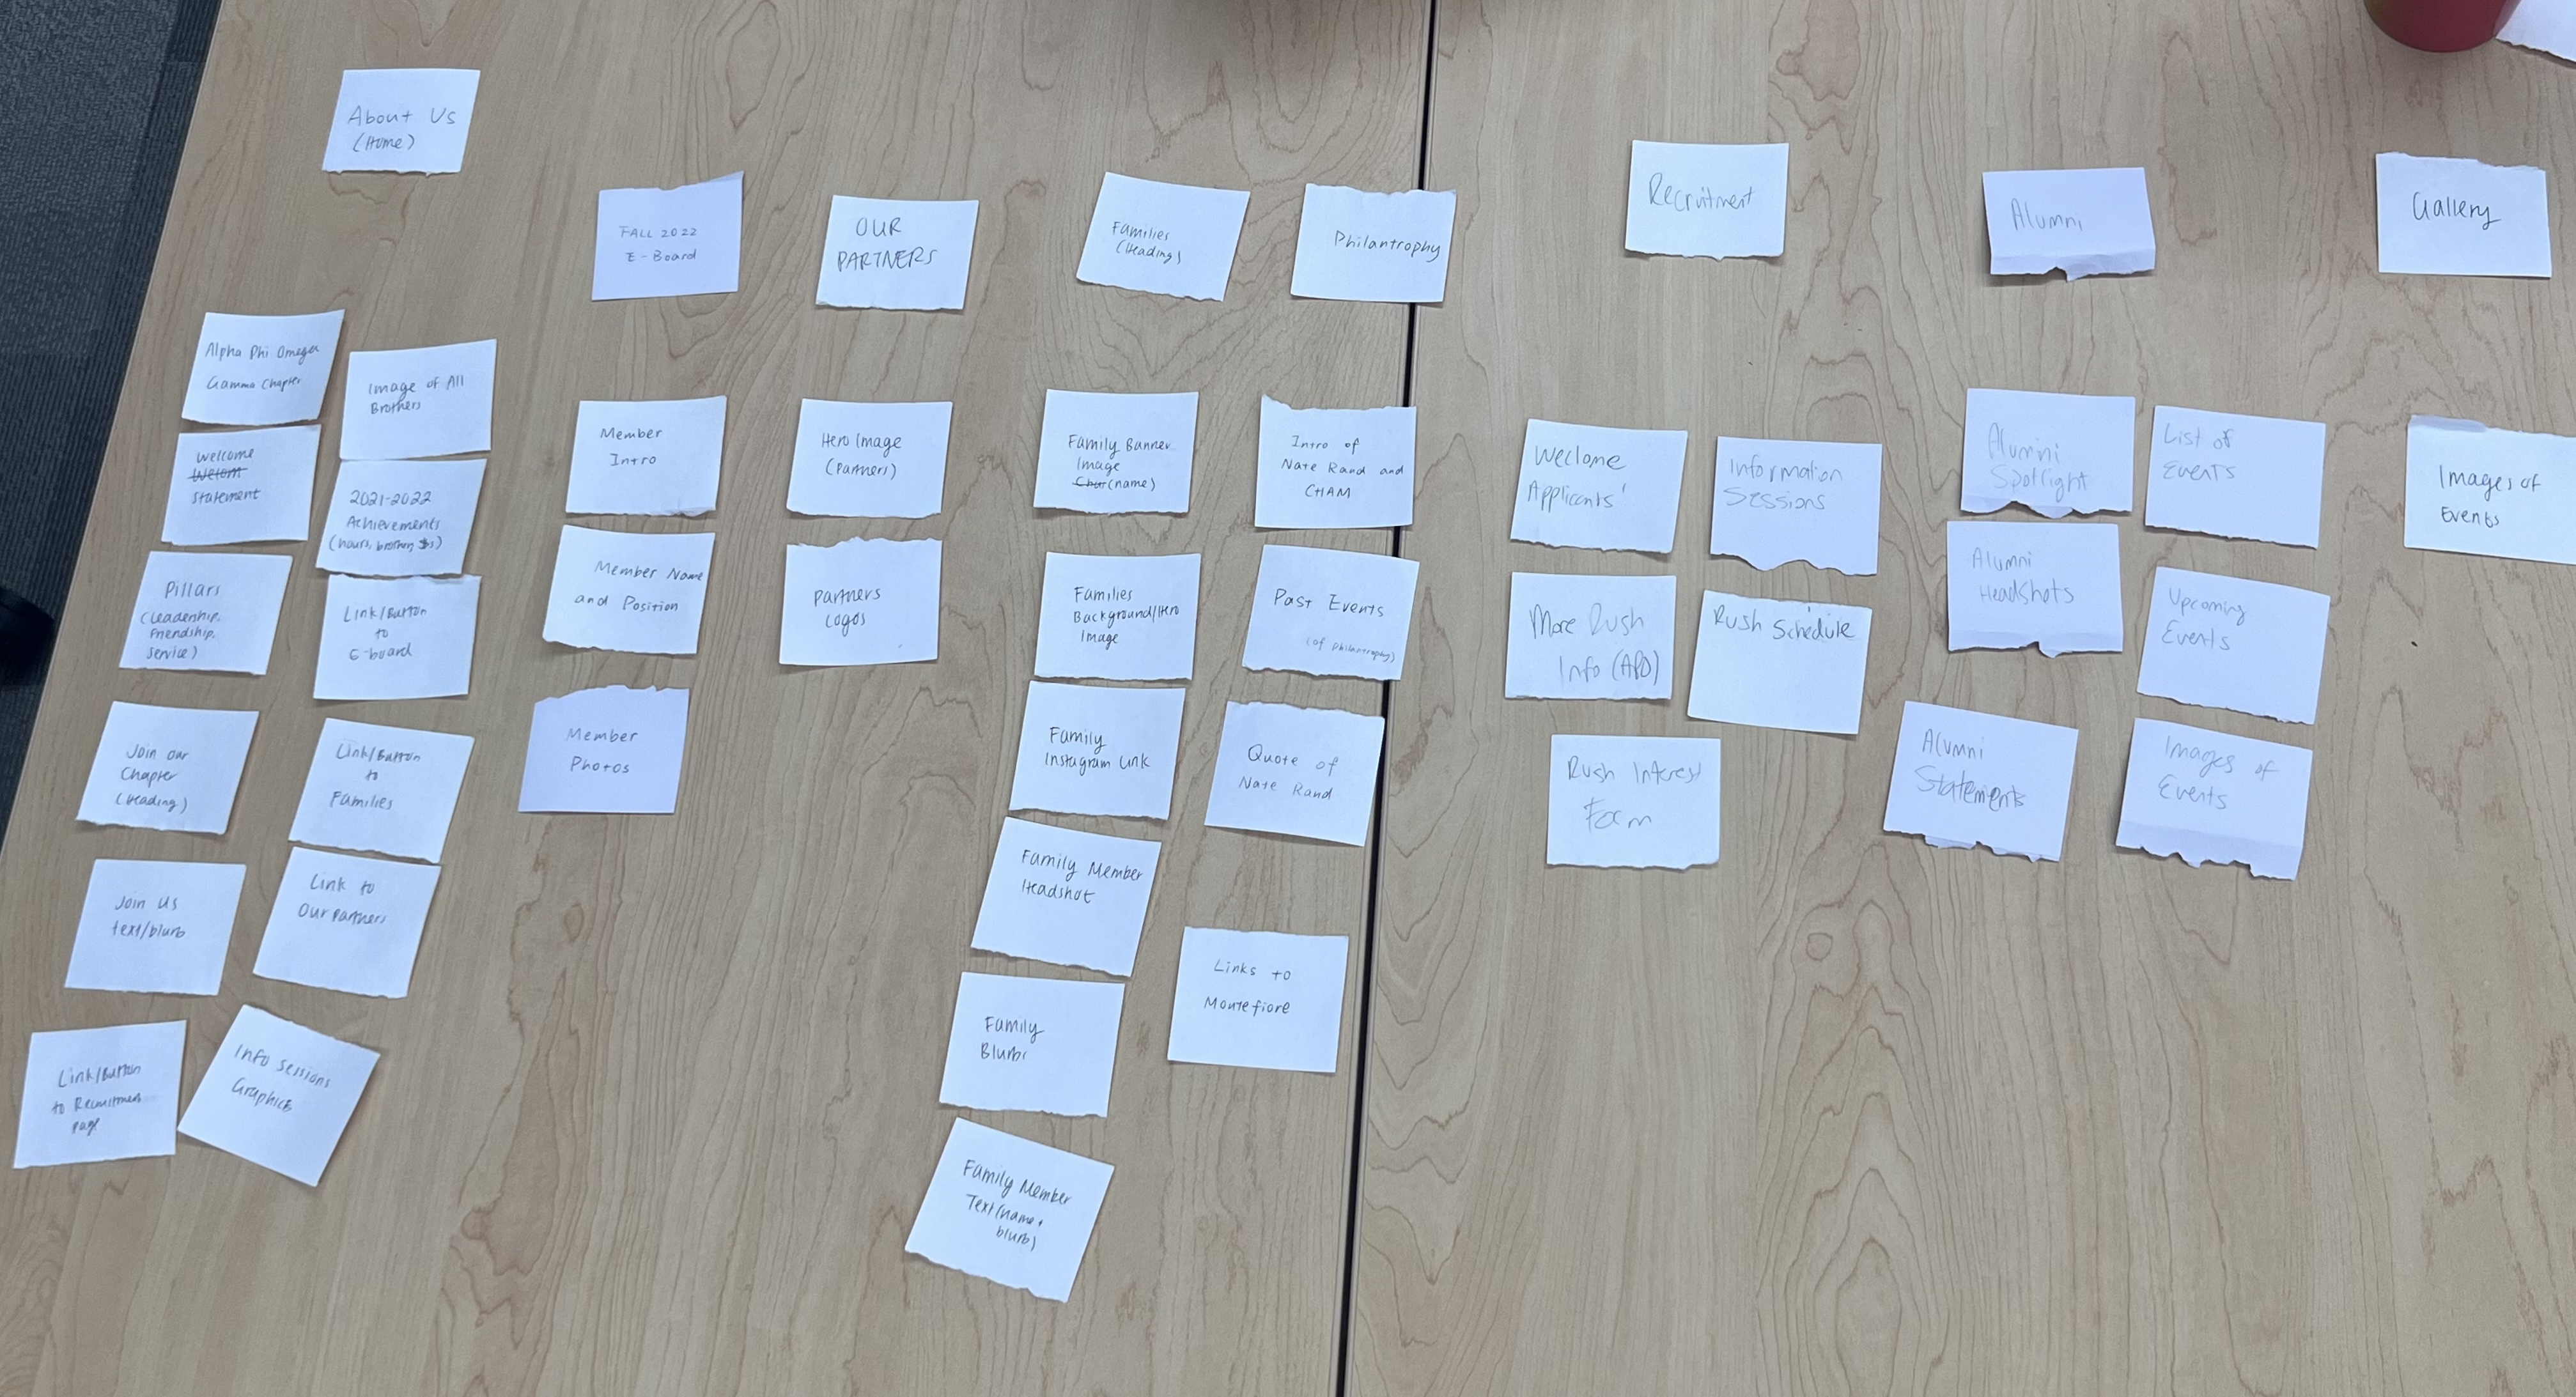 About Us
(Home)
FALL 2022
E-Board
OUR
PARTNERS
Families
(Heading)
Philantrophy
Recruitment
Alumni
Gallery
Alpha Phi Omega
Gamma Chapter
Welcome
Welcom
Statement
Pillars
(Leadership,
Friendship,
Service)
Join our
Chapter
(Heading)
Join Us
text/blurb
Link/Button
to Recruitment
page
Image of All
Brothers
2021-2022
Achievements
(hours, brothers, $s)
Link/Button
to
E-board
Link/Button
to
Families
Link to
Our Partners
Info sessions
Graphics
Member
Intro
Member Name
and Position
Member
Photos
Hero Image
(Partners)
Partners
Logos
Family Banner
Image
(name)
Families
Background/Hero
Image
Family
Instagram Link
Family Member
Headshot
Family
Blurbs
Family Member
Text (name +
blurb)
Intro of
Nate Rand and
CHAM
Past Events
(of philantrophy)
Quote of
Nate Rand
Links to
Montefiore
Weclome
Applicants'
More Rush
Info (APO)
Rush Interest
Form
Information
Sessions
Rush Schedule
Alumni
Spotlight
Alumni
Headshots
Alumni
Statements
List of
Events
Upcoming
Events
Images of
Events
Images of
Events